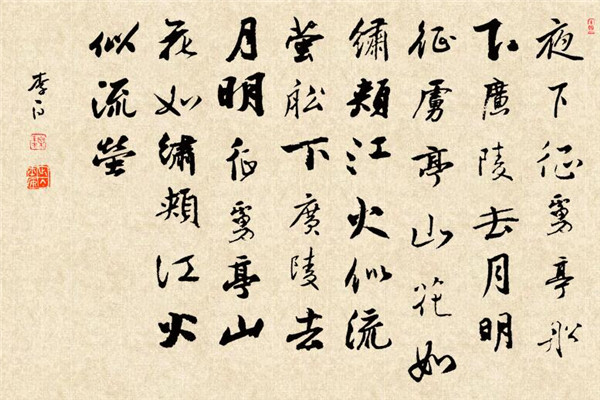 夜下征虜亭船
下廣陵去月明
征虜亭山花如
繡頰江火似流
螢舩下廣陵去
月明征虜亭山
花如繡頰江火
似流螢
李白